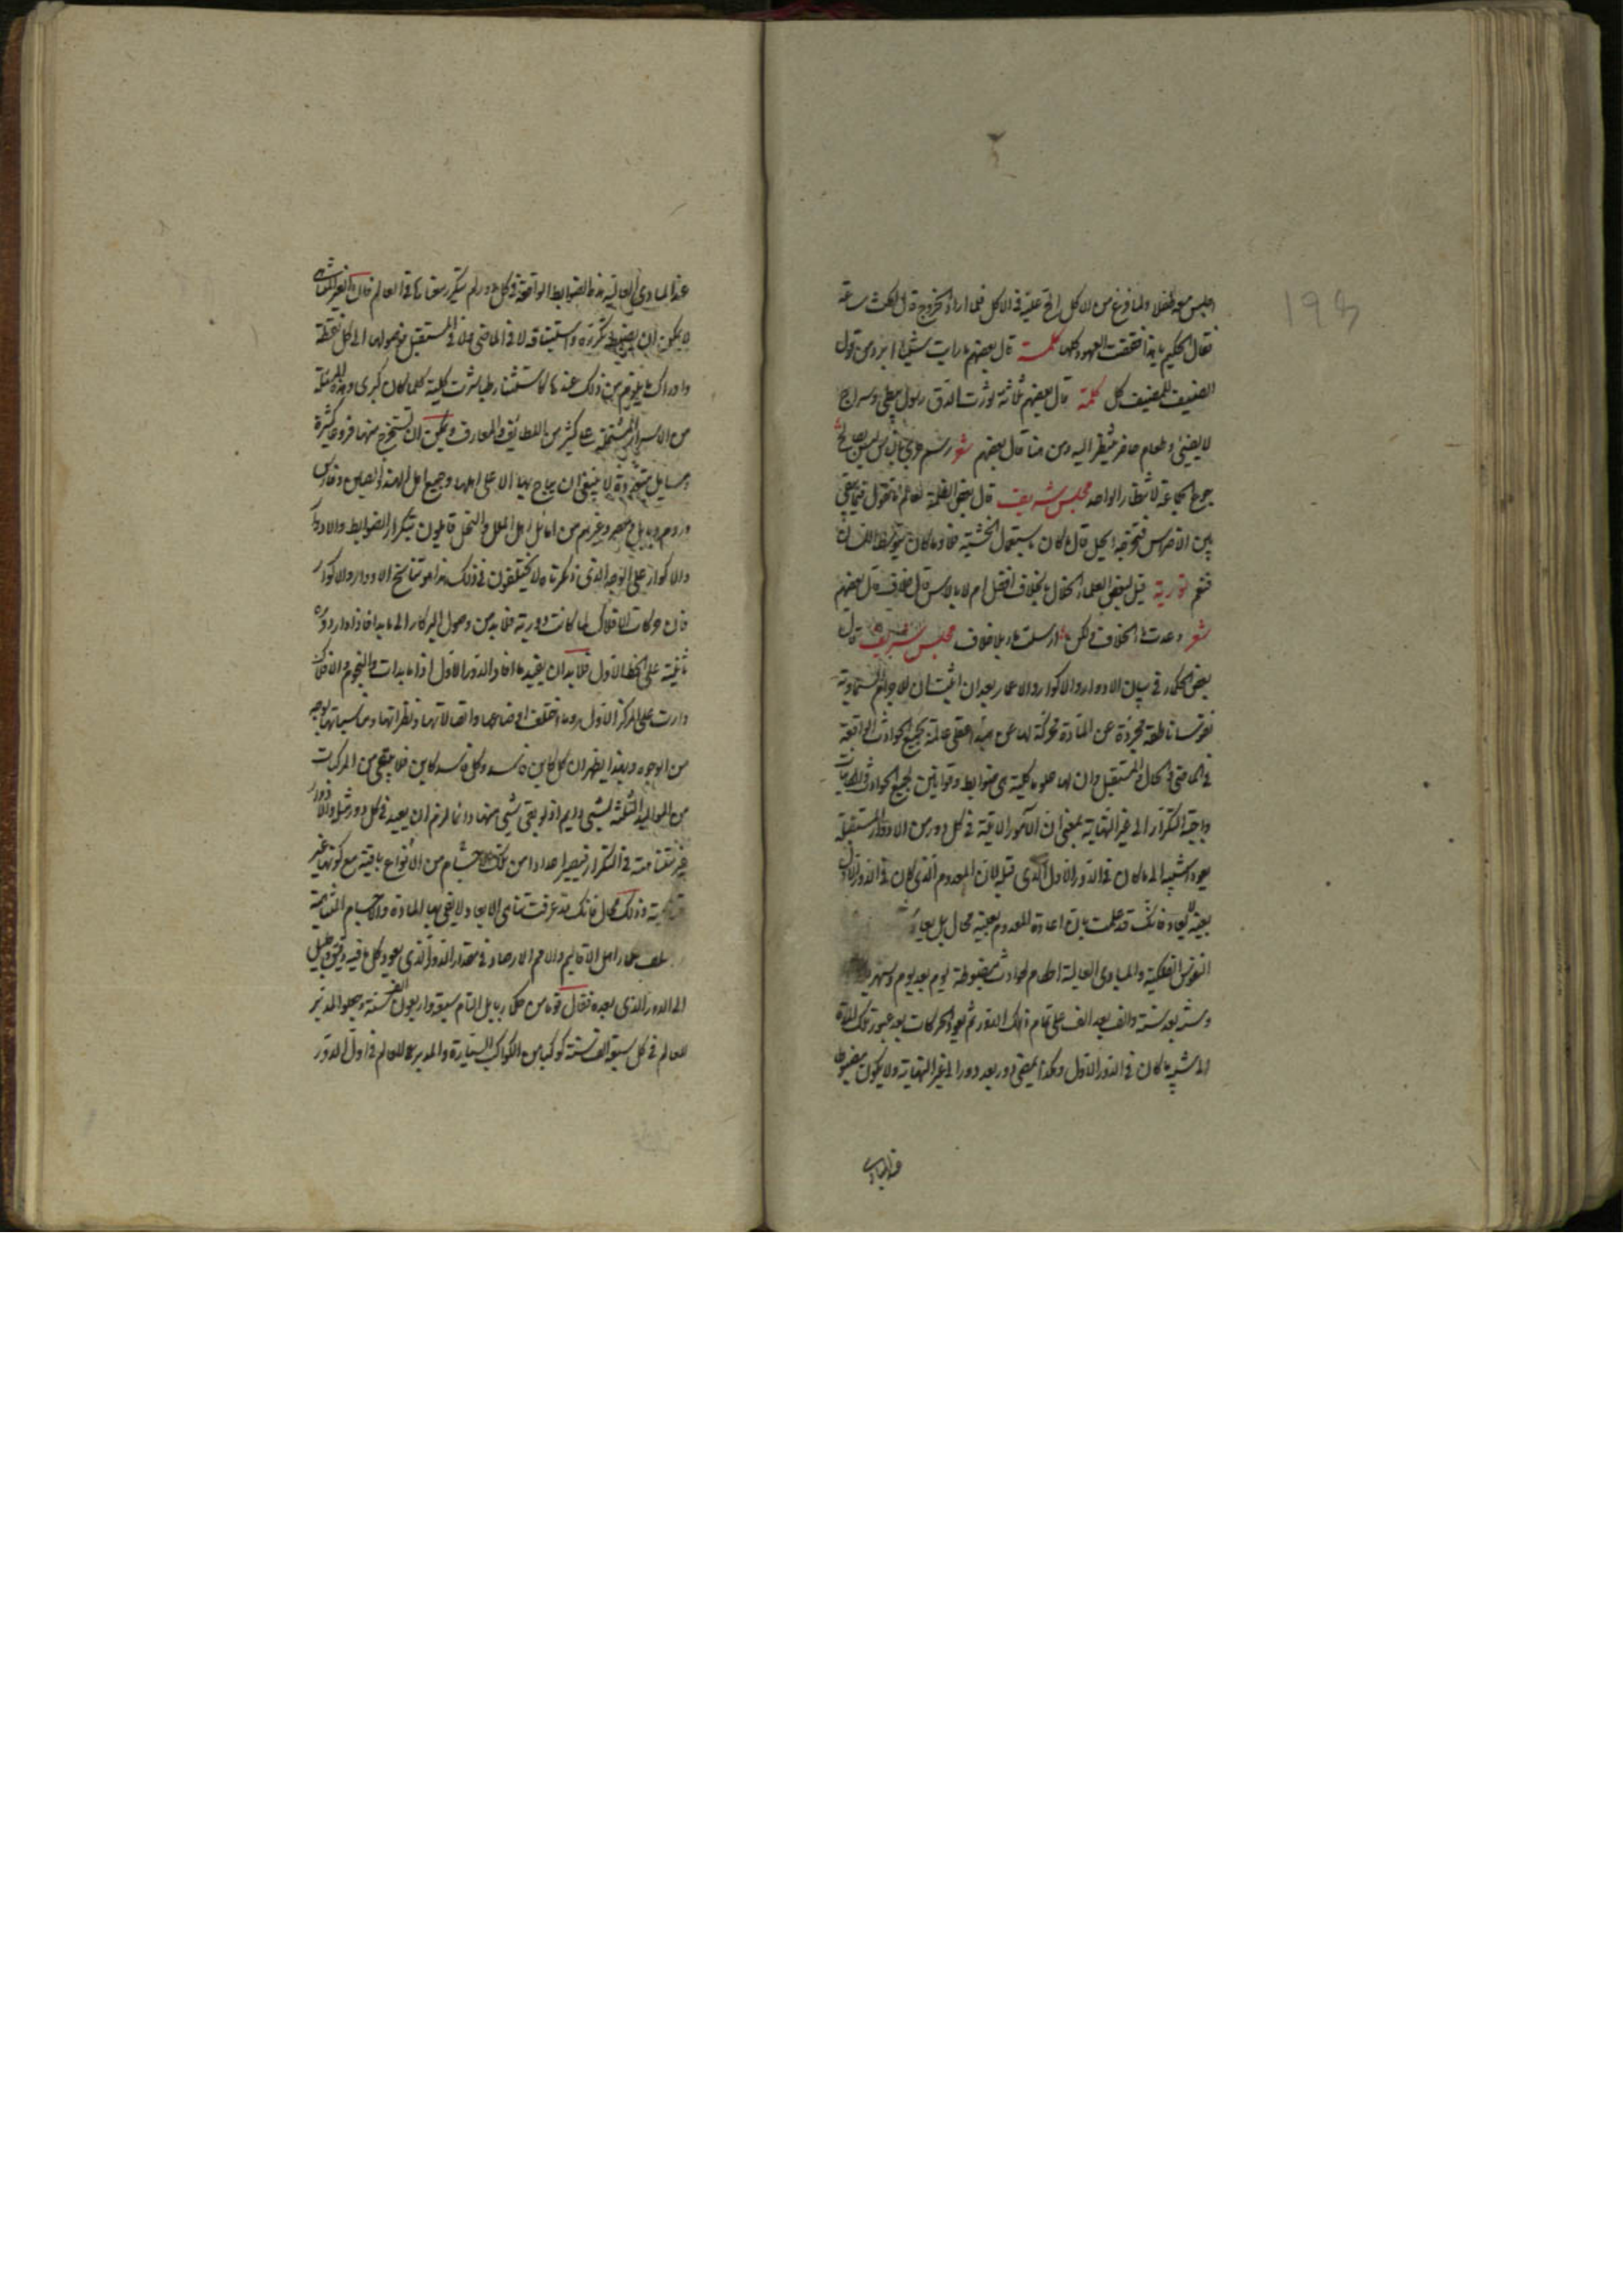 اجلس معه طفلا ولما فرغ من الاكل الح عليه في الاكل فلما اراد الخروج قال امكث ساعة
فقال الحكيم يا هذا نقضت العهود كلها كلمة قال بعضهم ما رايت شيئا ابرد من قول
المضيف للضيف كل كلمة قال بعضهم ثلاثة تورث الدق رسول بطي وسراج
لا يضيئ وطعام حاضر ينتظر اليه ومن هنا قال بعضهم شعر رسم جرى في الناس ليس بصالح
جوع الجماعة لانتظار الواحد مجلس شريف قال بعض الظلمة لعالم ما تقول فيما يبقى
بين الاضراس فيخرجه ايحل قال ما كان باستعمال الخشبة فلا وما كان بتوسط اللسان
فنعم تورية قيل لبعض العلماء الخلال بالخلاف افضل ام لا بالاس قال خلاف قال بعضهم
شعر وعدت بالخلاف ولكن ارسلت بلا خلاف مجلس شريف قال
بعض الحكماء في بيان الادوار والاكوار والاعمار بعد ان اثبت ان للاجرام السماوية
نفوسا ناطقة مجردة عن المادة محركة لها عن مبدأ عقلى عالمة بجميع الحوادث الواقعة
في الماضي والحال والمستقبل وان لها علوما كلية هي ضوابط وقوانين لجميع الحوادث والكاينات
واجبة التكرار الى غير النهاية بمعنى ان الامور الاتية في كل دور من الادوار المستقبلة
يعود شبيه الى ما كان في الدور الاول الذي قبله لان المعدوم الذي كان في الدور الاول
بعينه لا يعاد فانك قد علمت بان اعادة المعدوم بعينه محال بل يعاد
النفوس الفلكية والمبادى العالية احكام الحوادث مضبوطة يوم بعد يوم وشهر
وسنة بعد سنة والف بعد الف على تمام ذلك الدور ثم يعود الحركات بعد عبور تلك المدة
الى شبيه ما كان في الدور الاول وهكذا يمضى دور بعد دور الى غير النهاية ولا يكون مضبوطا
عند المبادى
عند المبادى العالية هذا الضوابط الواقعة في كل دور لم يتكرر مقارنا في العالم فان الغير المتناهى
لا يمكن ان يضبط تكرره واستيناقه لا في الماضي ولا في المستقبل فوصولها الى كل نقطة
وادراك ما يلزم من ذلك عندها كاستثناء شرطيات كلية كلما كان كبرى وهذه المسئلة
من الاسرار المشتملة على كثير من اللطايف والمعارف ويمكن ان تستخرج منها فروع كثيرة
ومسايل لا ينبغى ان يباح بها الا على اهلها وجميع اهل الهند والصين وفارس
وروم وبابل ومصر وغيرهم من اماثل اهل الملل والنحل قايلون بتكرار الضوابط والادوار
والاكوار على الوجه الذي ذكرناه لا يختلفون في ذلك وهذا هو تناسخ الادوار والاكوار
فان حركات الافلاك لما كانت دورية فلا بد من وصول البركار الى ما بدا فاذا دار دورة
ثانية على الخط الاول فلا بد ان يفيد ما افاد الدور الاول اذا ما بدات والنجوم والافلاك
دارت على المركز الاول وما اختلفت اوضاعها واتصالاتها ونظراتها ومناسباتها بوجه
من الوجوه وبهذا يظهر ان كل كاين فاسد وكل فاسد كاين فلا يبقى من المركبات
من المواليد الثلثة لشيئ دايم اذ لو بقى شيئ منها دائما لزم ان يعيد في كل دور مثله والادوار
غير متناهية في التكرار فيصير اعدادا من تلك الاجسام من الانواع باقية مع كونها غير
متناهية وذلك محال فانك قد عرفت تناهى الابعاد ولا يفى بها المادة والاجسام المتناهية
اختلف علماء اهل الاقاليم والامم الارصاد في مقدار الدور الذي يعود كل ما فيه دقيق وجليل
الى الدور الذي بعده فقال قوم من حكماء بابل التام سبعة واربعون الف سنة وجعلوا المدبر
للعالم في كل سبعة الف سنة كوكبا من الكواكب السيارة والمدبر للعالم في اول الدور